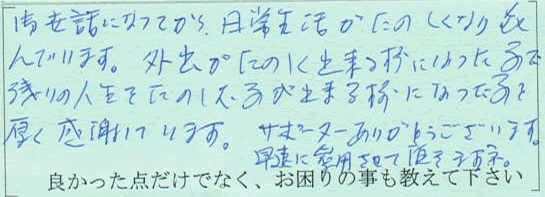 御世話になってから、日常生活がたのしくなり喜
んでいます。外出がたのしく出来る様になった事で
残りの人生をたのしむ事が出来る様になった事を
厚く感謝しています。サポーターありがとうございます。
早速に愛用させて頂きます。
良かった点だけでなく、お困りの事も教えて下さい